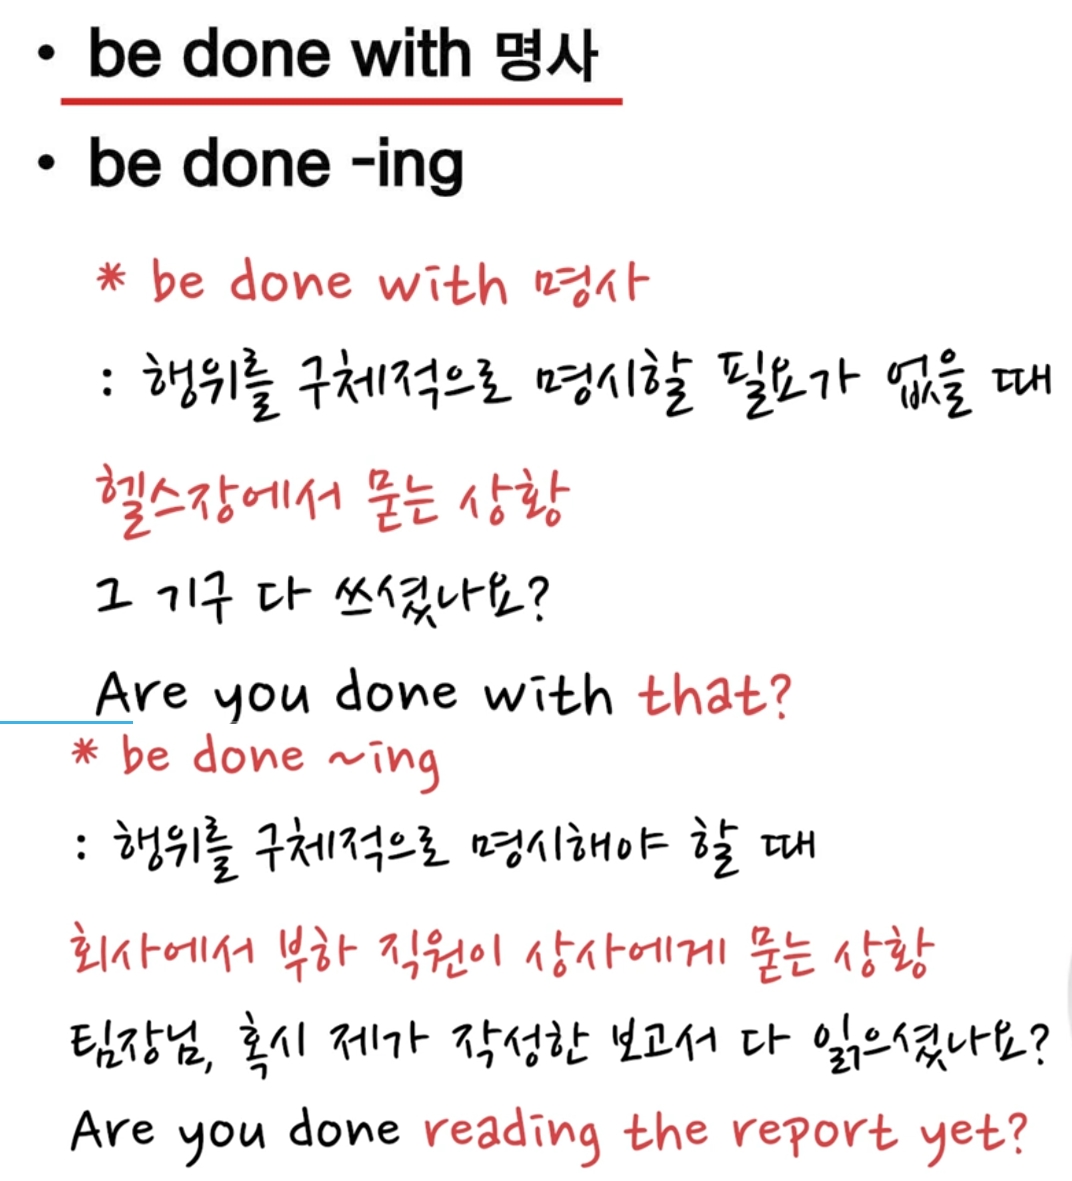 • be done with 명사
• be done -ing
* be done with 명사
: 행위를 구체적으로 명시할 필요가 없을 때
헬스장에서 묻는 상황
그 기구 다 쓰셨나요?
Are you done with that?
* be done ~ing
: 행위를 구체적으로 명시해야 할 때
회사에서 부하 직원이 상사에게 묻는 상황
팀장님, 혹시 제가 작성한 보고서 다 읽으셨나요?
Are you done reading the report yet?